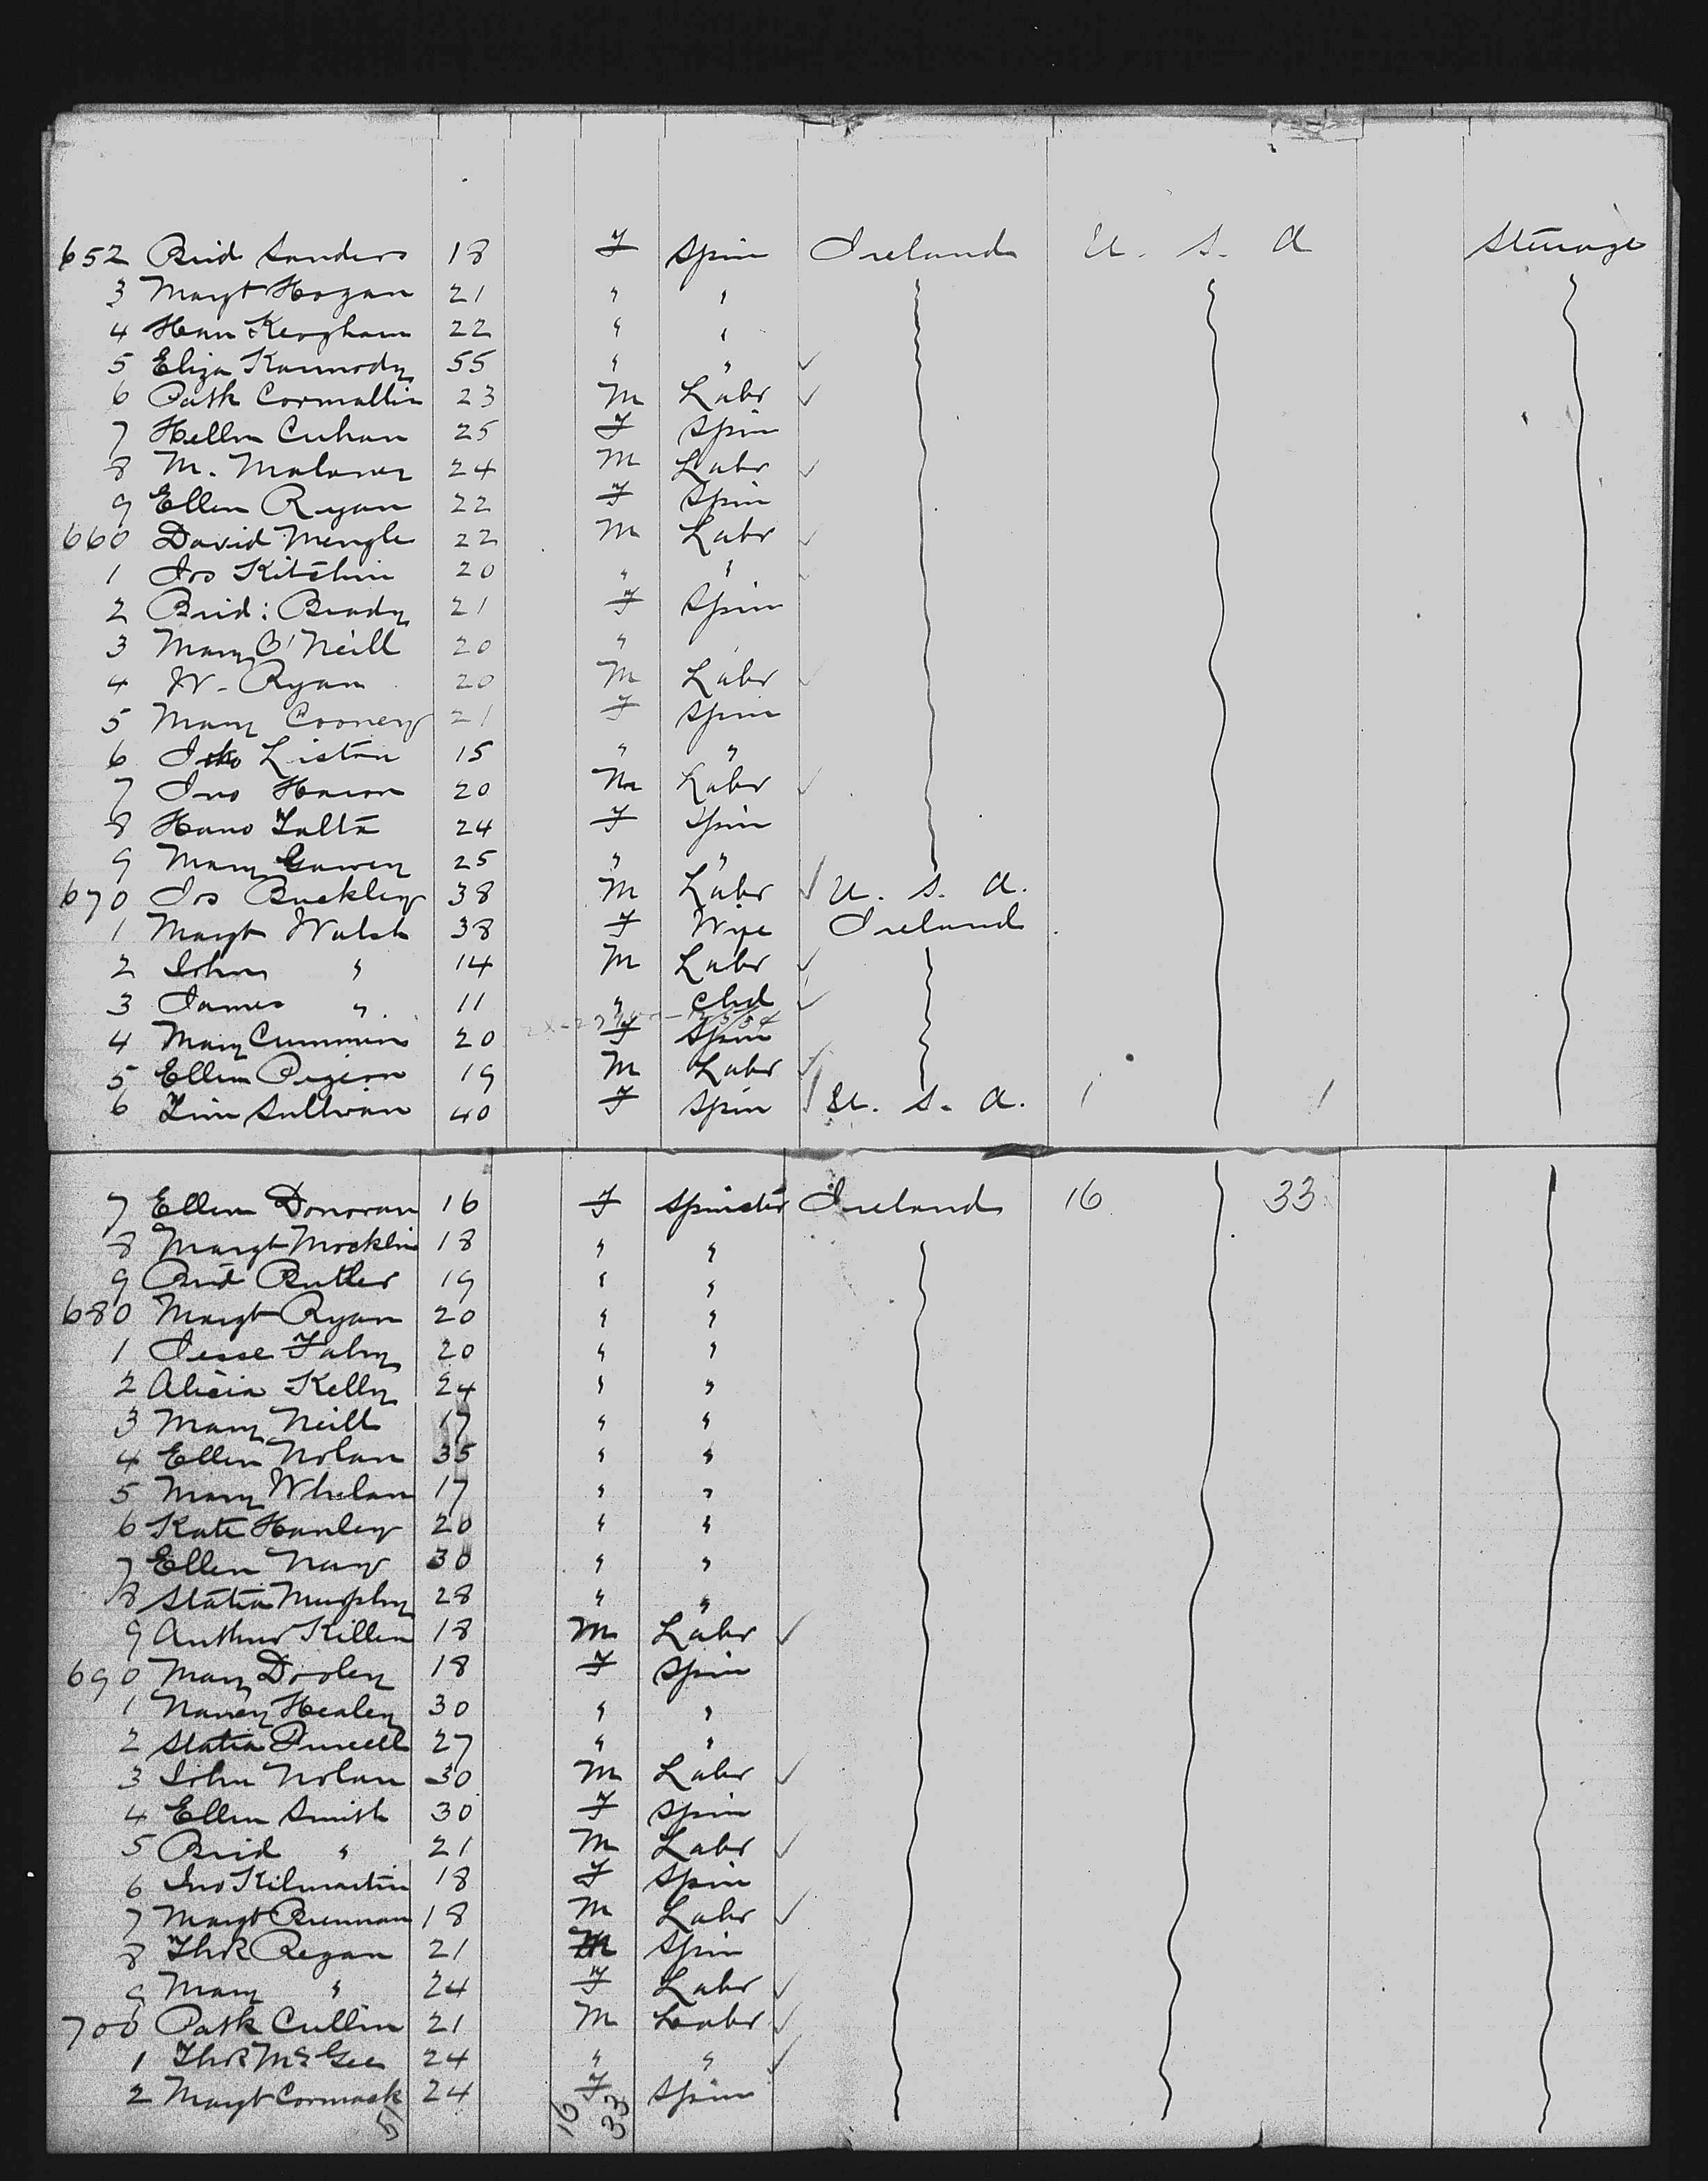 652 Brid Sanders 18 F Spin Ireland U. S. A Steerage
3 Margt Hogan 21 " "
4 Han Keogham 22 " "
5 Eliza Karmody 55 " " ✓
6 Patk Cormallin 23 M Labr ✓
7 Hellen Cuhan 25 F Spin
8 M. Maloney 24 M Labr ✓
9 Ellen Ryan 22 F Spin
660 David Mengle 22 M Labr ✓
1 Jos Kitchin 20 " "
2 Brid: Brady 21 F Spin
3 Mary O'Neill 20 "
4 W. Ryan 20 M Labr ✓
5 Mary Cooney 21 F Spin
6 Liston 15 " "
7 Jno Hearn 20 M Labr ✓
8 Hano Talta 24 F Spin
9 Mary Gawey 25 " "
670 Jos Buckley 38 M Labr ✓ U. S. A.
1 Margt Walsh 38 F Wife Ireland
2 John " 14 M Labr ✓
3 James " 11 " Chd ✓
4 Mary Cummins 20 F Spin
5 Ellen Pigeon 19 M Labr ✓
6 Tim Sullivan 40 F Spin ✓ U. S. A. 1 1
7 Ellen Donovan 16 F Spinster Ireland 16 33
8 Margt Mocklin 18 " "
9 Brid Butler 19 " "
680 Margt Ryan 20 " "
1 Jesse Fahy 20 " "
2 Alicia Kelly 24 " "
3 Mary Neill 17 " "
4 Ellen Nolan 35 " "
5 Mary Whelan 17 " "
6 Kate Hanley 20 " "
7 Ellen Nary 30 " "
8 Statia Murphy 28 " "
9 Arthur Killen 18 M Labr ✓
690 Mary Dooley 18 F Spin
1 Nancy Healey 30 " "
2 Statia Purcell 27 " "
3 John Nolan 30 M Labr ✓
4 Ellen Smith 30 F Spin
5 Brid " 21 M Labr ✓
6 Jno Kilmartin 18 F Spin
7 Margt Brennan 18 M Labr ✓
8 Regan 21 M Spin
9 Mary " 24 F Labr ✓
700 Patk Cullin 21 M Labr ✓
1 McGee 24 " " ✓
2 Margt Cormack 24 F Spin
51 16 33